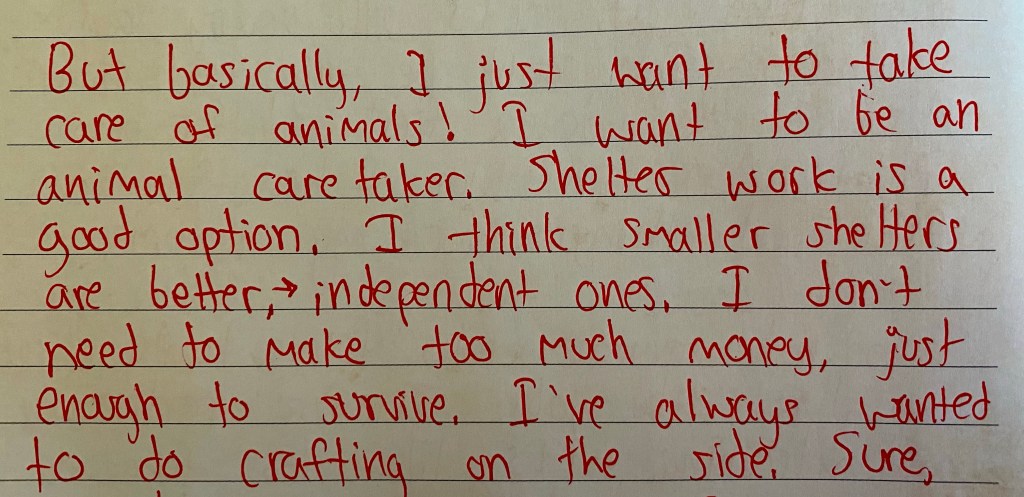 But basically, I just want to take
care of animals! I want to be an
animal care taker. Shelter work is a
good option. I think smaller shelters
are better, → independent ones. I don't
need to make too much money, just
enough to survive. I've always wanted
to do crafting on the side. Sure,